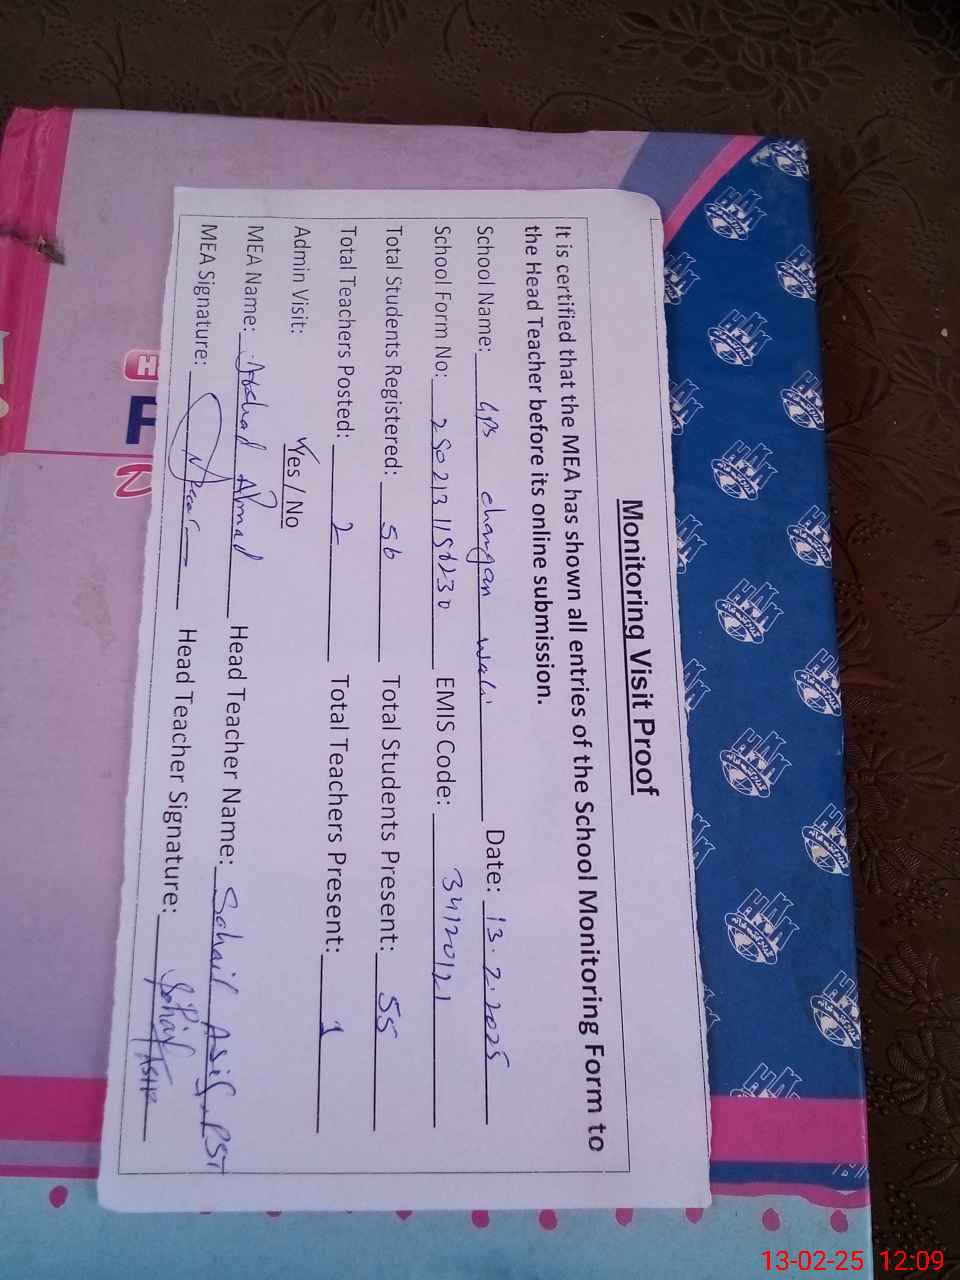 Monitoring Visit Proof
It is certified that the MEA has shown all entries of the School Monitoring Form to
the Head Teacher before its online submission.
School Name: GPS changan wali Date: 13.2.2025
School Form No: EMIS Code: 34120121
Total Students Registered: 56 Total Students Present: 55
Total Teachers Posted: 2 Total Teachers Present: 1
Admin Visit: Yes / No
MEA Name: Arshad Ahmad Head Teacher Name: Sohail Asif PST
MEA Signature: Head Teacher Signature: Sohail
13-02-25 12:09